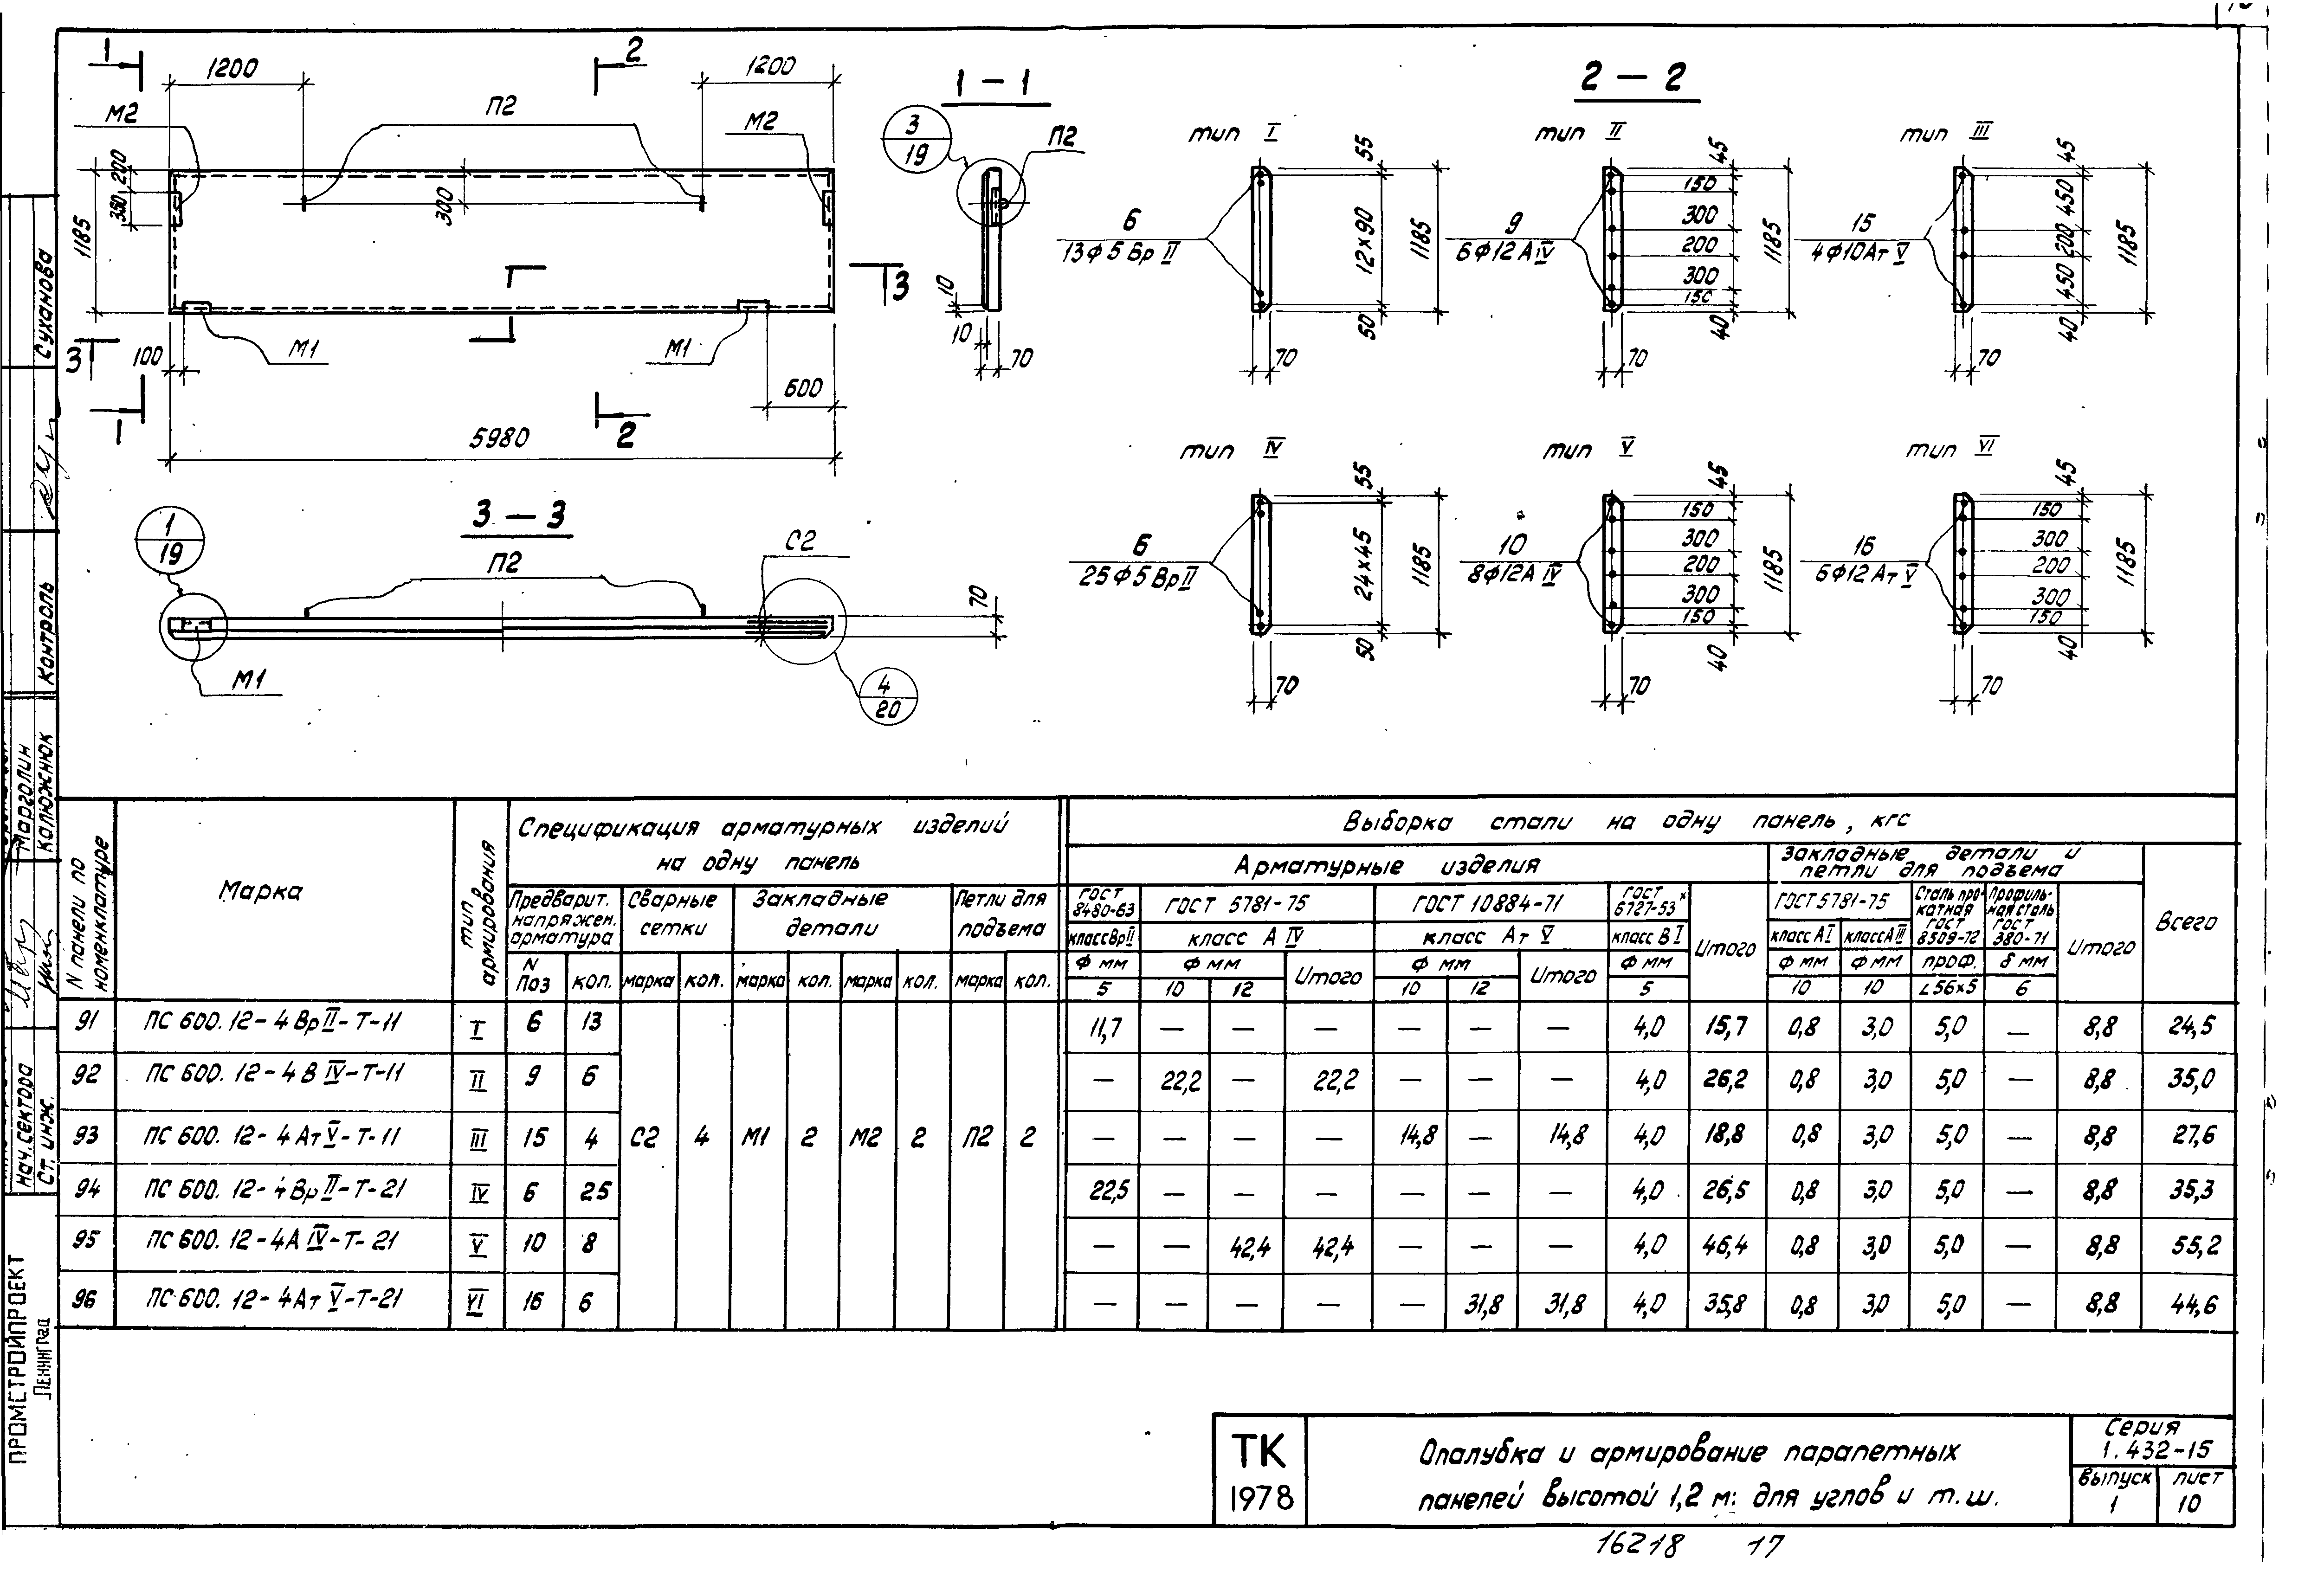 1
2
1200
1200
М2
П2
М2
1185
350
200
300
3
3
100
М1
М1
600
1
2
5980
1 – 1
3
19
П2
10
10
70
2 – 2
тип I
6
13Ф5ВрII
55
12×90
50
1185
70
тип II
9
6Ф12АIV
45
150
300
200
300
150
40
1185
70
тип III
15
4Ф10АтV
45
450
200
450
40
1185
70
3 – 3
1
19
П2
С2
70
М1
4
20
тип IV
6
25Ф5ВрII
55
24×45
50
1185
70
тип V
10
8Ф12АIV
45
150
300
200
300
150
40
1185
70
тип VI
16
6Ф12АтV
45
150
300
200
300
150
40
1185
70
N панели по номенклатуре
Марка
Тип армирования
Спецификация арматурных изделий на одну панель
Предварит. напряжен. арматура
Сварные сетки
Закладные детали
Петли для подъема
N поз
кол.
марка
кол.
марка
кол.
марка
кол.
марка
кол.
Выборка стали на одну панель, кгс
Арматурные изделия
Закладные детали и петли для подъема
Всего
ГОСТ 8480-63
ГОСТ 5781-75
ГОСТ 10884-71
ГОСТ 6727-53х
Итого
ГОСТ 5781-75
Сталь прокатная ГОСТ 8509-72
Профильная сталь ГОСТ 380-71
Итого
класс ВрII
класс АIV
класс АтV
класс ВI
класс АI
класс АIII
Ф мм
Ф мм
Итого
Ф мм
Итого
Ф мм
Ф мм
Ф мм
проф.
δ мм
5
10
12
10
12
5
10
10
∠56×5
6
91 ПС 600. 12-4ВрII-Т-11 I 6 13 11,7 — — — — — — 4,0 15,7 0,8 3,0 5,0 — 8,8 24,5
92 ПС 600. 12-4ВIV-Т-11 II 9 6 — 22,2 — 22,2 — — — 4,0 26,2 0,8 3,0 5,0 — 8,8 35,0
93 ПС 600. 12-4АтV-Т-11 III 15 4 С2 4 М1 2 М2 2 П2 2 — — — — 14,8 — 14,8 4,0 18,8 0,8 3,0 5,0 — 8,8 27,6
94 ПС 600. 12-4ВрII-Т-21 IV 6 25 22,5 — — — — — — 4,0 26,5 0,8 3,0 5,0 — 8,8 35,3
95 ПС 600. 12-4АIV-Т-21 V 10 8 — — 42,4 42,4 — — — 4,0 46,4 0,8 3,0 5,0 — 8,8 55,2
96 ПС 600. 12-4АтV-Т-21 VI 16 6 — — — — — 31,8 31,8 4,0 35,8 0,8 3,0 5,0 — 8,8 44,6
ТК
1978
Опалубка и армирование парапетных
панелей высотой 1,2 м: для углов и т.ш.
Серия
1.432-15
выпуск
1
лист
10
16218 17
Суханова
Контроль
Марголин
Калюжнюк
Нач. сектора
Ст. инж.
ПРОМСТРОЙПРОЕКТ
Ленинград